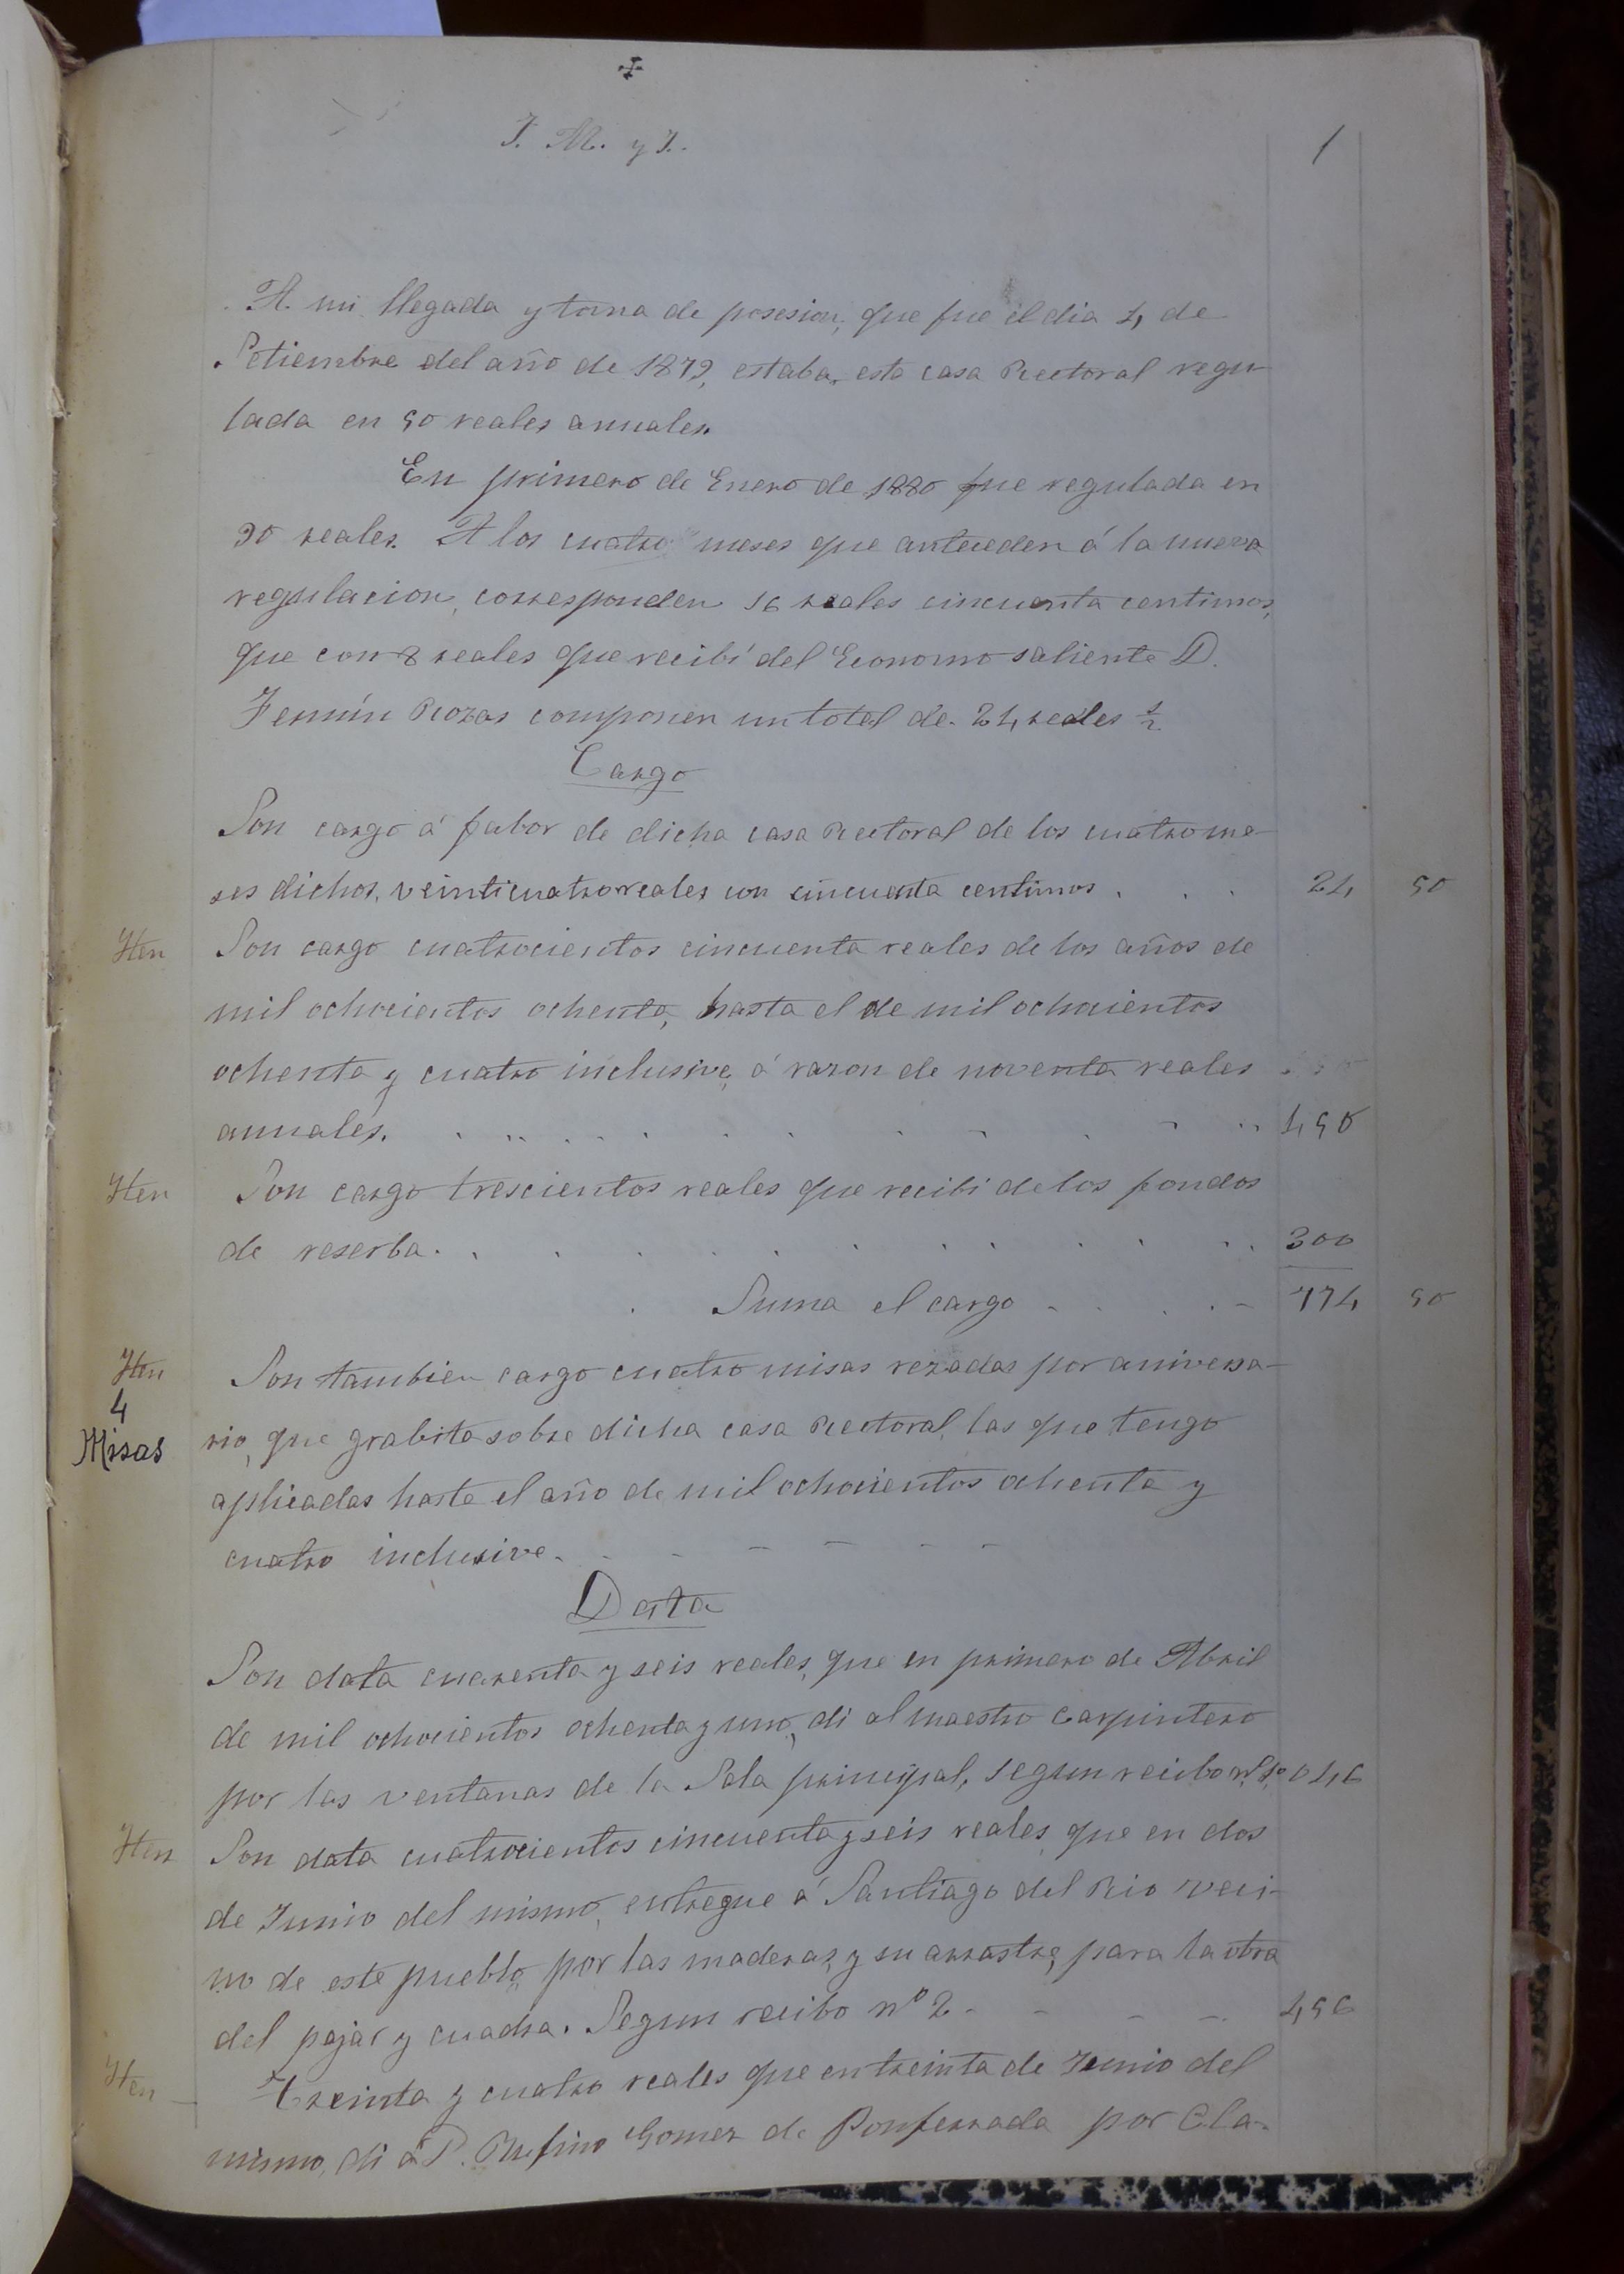 J. M. y J.
1
A mi llegada y toma de posesion, que fue el dia 4 de
Setiembre del año de 1879, estaba esta casa Rectoral regu
lada en 50 reales anuales.
En primero de Enero de 1880 fue regulada en
90 reales. A los cuatro meses que anteceden á la nueva
regulacion, corresponden 16 reales cincuenta centimos,
que con 8 reales que recibí del Economo saliente D.
Fermín Rozas componen un total de 24 reales ½
Cargo
Son cargo á fabor de dicha casa Rectoral de los cuatro me-
ses dichos, veinticuatro reales con cincuenta centimos . . . 24 50
Iten Son cargo cuatrocientos cincuenta reales de los años de
mil ochocientos ochenta, hasta el de mil ochocientos
ochenta y cuatro inclusive, á razon de noventa reales
anuales. . . . . . . . . . . . 450
Iten Son cargo trescientos reales que recibi de los fondos
de reserba. . . . . . . . . . . . 300
Suma el cargo - . . . - 774 50
Iten Son tambien cargo cuatro misas rezadas por aniversa-
4
Misas rio, que grabita sobre dicha casa Rectoral, las que tengo
aplicadas hasta el año de mil ochocientos ochenta y
cuatro inclusive. - - - - - -
Data
Son data cuarenta y seis reales, que en primero de Abril
de mil ochocientos ochenta y uno, di al maestro carpintero
por las ventanas de la Sala principal, segun recibo nº 1º 046
Iten Son data cuatrocientos cincuenta y seis reales, que en dos
de Junio del mismo, entregue á Santiago del Rio veci-
no de este pueblo, por las maderas, y su arrastre, para la obra
del pajar y cuadra. Segun recibo nº 2 - - - - 456
Iten - Treinta y cuatro reales que en treinta de Junio del
mismo, di á D. Rufino Gomez de Ponferrada por Cla-